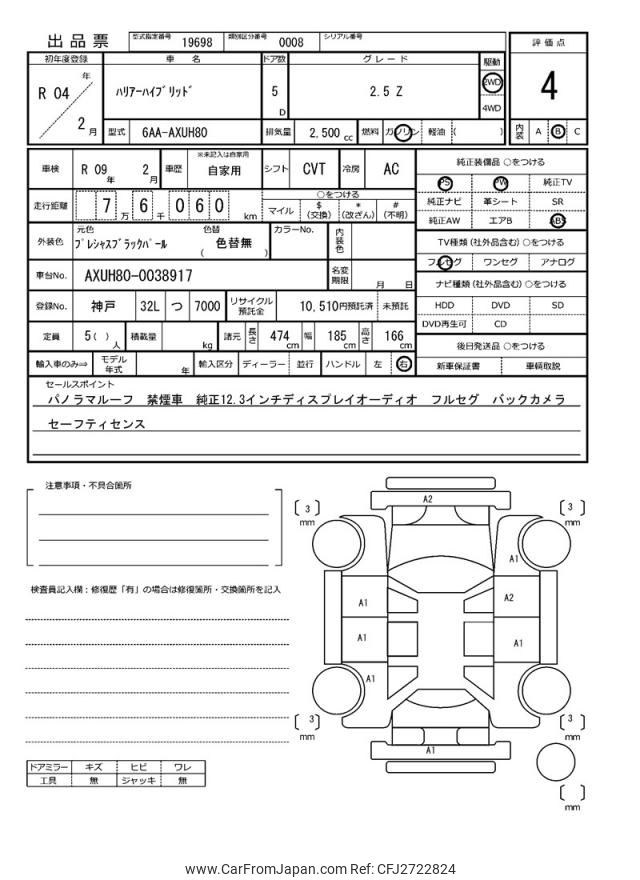 出品票 型式指定番号 19698 類別区分番号 0008 シリアル番号
評価点
4
初年度登録 車名 ドア数 グレード 駆動
R 04 年 2 月 ハリアーハイブリッド 5 D 2.5 Z 2WD
4WD
型式 6AA-AXUH80 排気量 2,500 cc 燃料 ガソリン 軽油 ( )
内装 A B C
車検 R 09 年 2 月 車歴 ※未記入は自家用 自家用 シフト CVT 冷房 AC
走行距離 7 万 6 千 0 6 0 km
○をつける
マイル $ (交換) * (改ざん) # (不明)
外装色 元色 プレシャスブラックパール 色替 ( 色替無 ) カラーNo. 内装色
車台No. AXUH80-0038917 名変期限 月 日
登録No. 神戸 32L つ 7000 リサイクル預託金 10,510円預託済 未預託
定員 5 ( ) 人 積載量 kg 諸元 長さ 474 cm 幅 185 cm 高さ 166 cm
輸入車のみ⇒ モデル年式 年 輸入区分 ディーラー 並行 ハンドル 左 右
純正装備品 ○をつける
PS PW 純正TV
純正ナビ 革シート SR
純正AW エアB ABS
TV種類 (社外品含む) ○をつける
フルセグ ワンセグ アナログ
ナビ種類 (社外品含む) ○をつける
HDD DVD SD
DVD再生可 CD
後日発送品 ○をつける
新車保証書 車輌取説
セールスポイント
パノラマルーフ 禁煙車 純正12.3インチディスプレイオーディオ フルセグ バックカメラ
セーフティセンス
注意事項・不具合箇所
検査員記入欄：修復歴「有」の場合は修復箇所・交換箇所を記入
ドアミラー キズ ヒビ ワレ
工具 無 ジャッキ 無
A2
[ 3 ] mm
[ 3 ] mm
A1
A1
A2
A1
A1
A1
[ 3 ] mm
[ 3 ] mm
A1
[ ] mm
www.CarFromJapan.com Ref: CFJ2722824